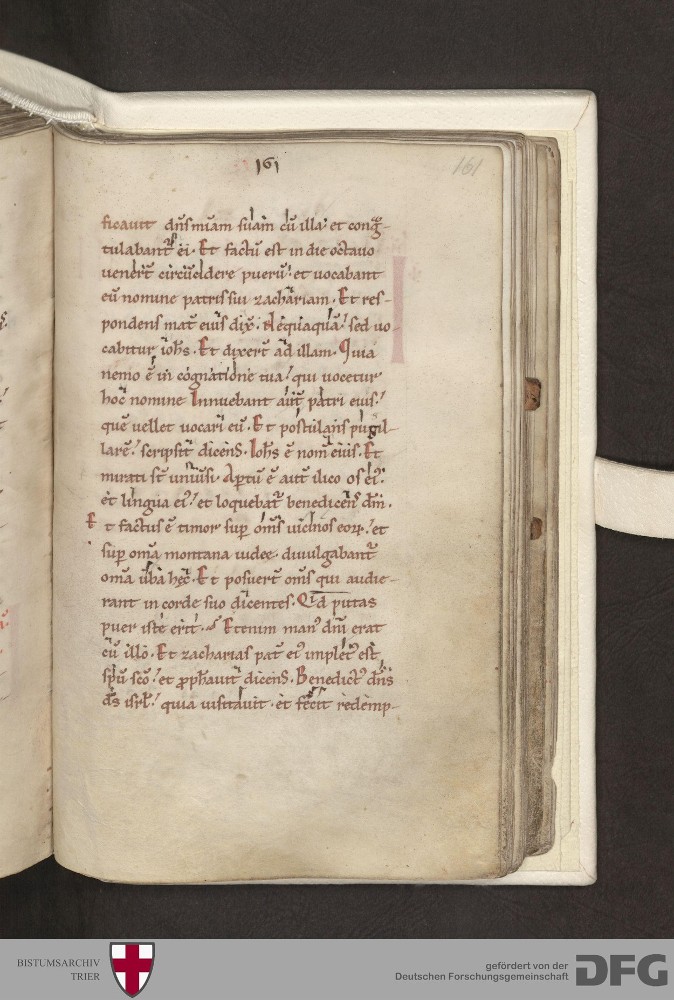 161
161
ficauit dn̄s miam̄ suam cū illa· et congͣ-
tulabant᷑ ei· Et factū est in die octauo
uener̄t circūcidere puerū· et uocabant
eū nomine patris sui zachariam· Et res-
pondens mat᷑ eius dix̄· Nequiaquā! sed uo-
cabitur ioh̄s· Et dixer̄t ad illam· Quia
nemo ē in cognatione tua! qui uocetur
hoc nomine Innuebant aūt patri eius!
quē uellet uocari eū· Et postulans pugil-
larē! scripsit dicens· Ioh̄s ē nom̄ eius· Et
mirati st̄ uniūsi· Aptū ē aūt ilico os ei᷒·
et lingua ei᷒! et loquebat᷑ benedicens dm̄·
Et factus ē timor sup om̄s uicinos eoꝝ! et
sup om̄a montana iudee· diuulgabant᷑
om̄a ūba hęc· Et posuer̄t om̄s qui audie-
rant in corde suo dicentes· Qͥd putas
puer iste erit· Etenim man᷒ dn̄i erat
cū illo· Et zacharias pat᷑ ei᷒ implet᷒ est
sp̄u sc̄o! et ꝓph̄auit dicens· Benedict᷒ dn̄s
ds̄ isrl̄! quia uisitauit· et fecit redemp-
BISTUMSARCHIV
TRIER
gefördert von der
Deutschen Forschungsgemeinschaft
DFG